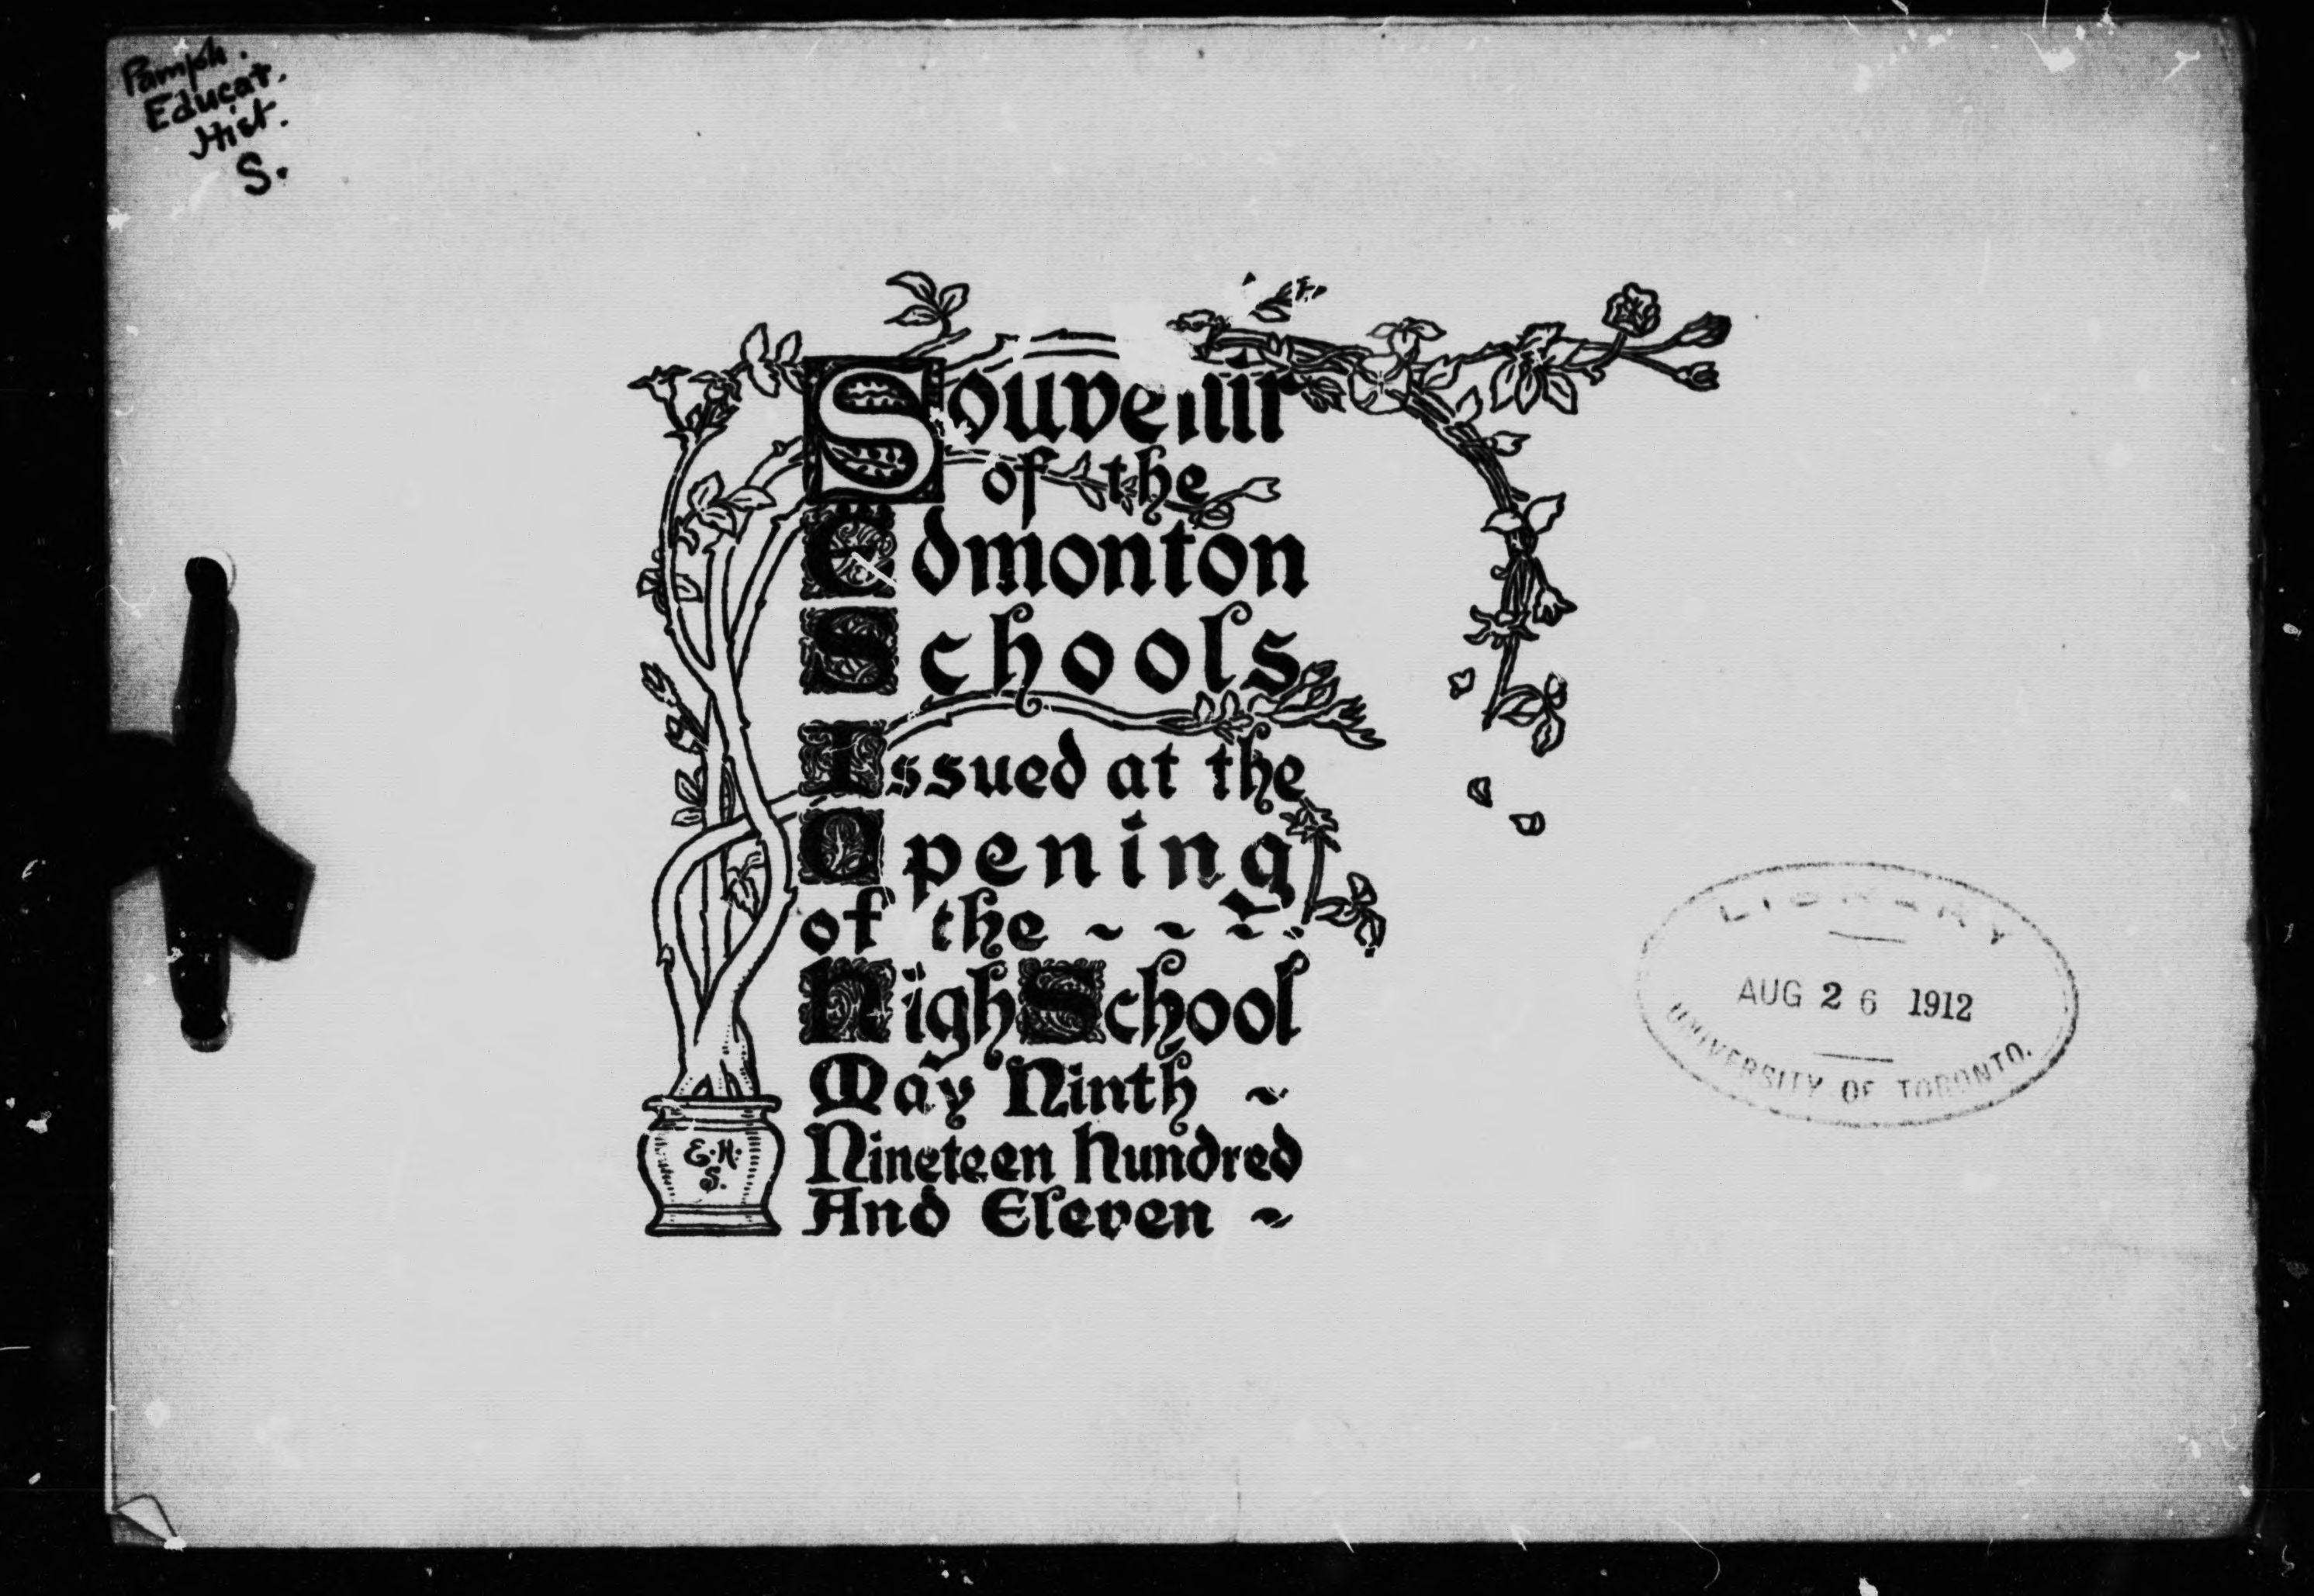 Pamph.
Educat.
Hist.
S.
Souvenir
of the
Edmonton
Schools
Issued at the
Opening
of the ~ ~ ~
High School
May Ninth ~
Nineteen Hundred
And Eleven ~
E.H.
S.
LIBRARY
AUG 26 1912
UNIVERSITY OF TORONTO.